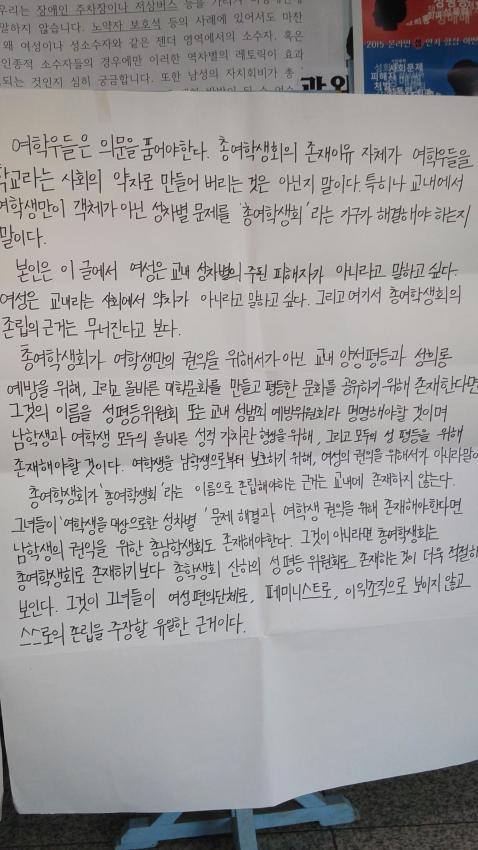 우리는 장애인 주차장이나 저상버스 등을
말하지 않습니다. 노약자 보호석 등의 사례에 있어서도 마찬
왜 여성이나 성소수자와 같은 젠더 영역에서의 소수자, 혹은
인종적 소수자들의 경우에만 이러한 역차별의 레토릭이 효과
되는 것인지 심히 궁금합니다. 또한 남성의 자치회비가 총
2015 온라인 성 인지 향상
사회문제
피해자
처벌
여학우들은 의문을 품어야한다. 총여학생회의 존재이유 자체가 여학우들을
학교라는 사회의 약자로 만들어 버리는 것은 아닌지 말이다. 특히나 교내에서
여학생만이 객체가 아닌 성차별 문제를 '총여학생회'라는 기구가 해결해야 하는지
말이다.
본인은 이 글에서 여성은 교내 성차별의 주된 피해자가 아니라고 말하고 싶다.
여성은 교내라는 사회에서 약자가 아니라고 말하고 싶다. 그리고 여기서 총여학생회의
존립의 근거는 무너진다고 본다.
총여학생회가 여학생만의 권익을 위해서가 아닌 교내 양성평등과 성희롱
예방을 위해, 그리고 올바른 대학문화를 만들고 평등한 문화를 공유하기 위해 존재한다면
그것의 이름을 성평등위원회 또는 교내 성범죄 예방위원회라 명명해야할 것이며
남학생과 여학생 모두의 올바른 성적 가치관 형성을 위해, 그리고 모두의 성 평등을 위해
존재해야할 것이다. 여학생을 남학생으로부터 보호하기 위해, 여성의 권익을 위해서가 아니라말이
총여학생회가 '총여학생회'라는 이름으로 존립해야하는 근거는 교내에 존재하지 않는다.
그녀들이 '여학생을 대상으로한 성차별' 문제 해결과 여학생 권익을 위해 존재해야한다면
남학생의 권익을 위한 총남학생회도 존재해야한다. 그것이 아니라면 총여학생회는
총여학생회로 존재하기보다 총학생회 산하의 성 평등 위원회로 존재하는 것이 더욱 적절하
보인다. 그것이 그녀들이 여성편의단체로, 페미니스트로, 이익조직으로 보이지 않고
스스로의 존립을 주장할 유일한 근거이다.